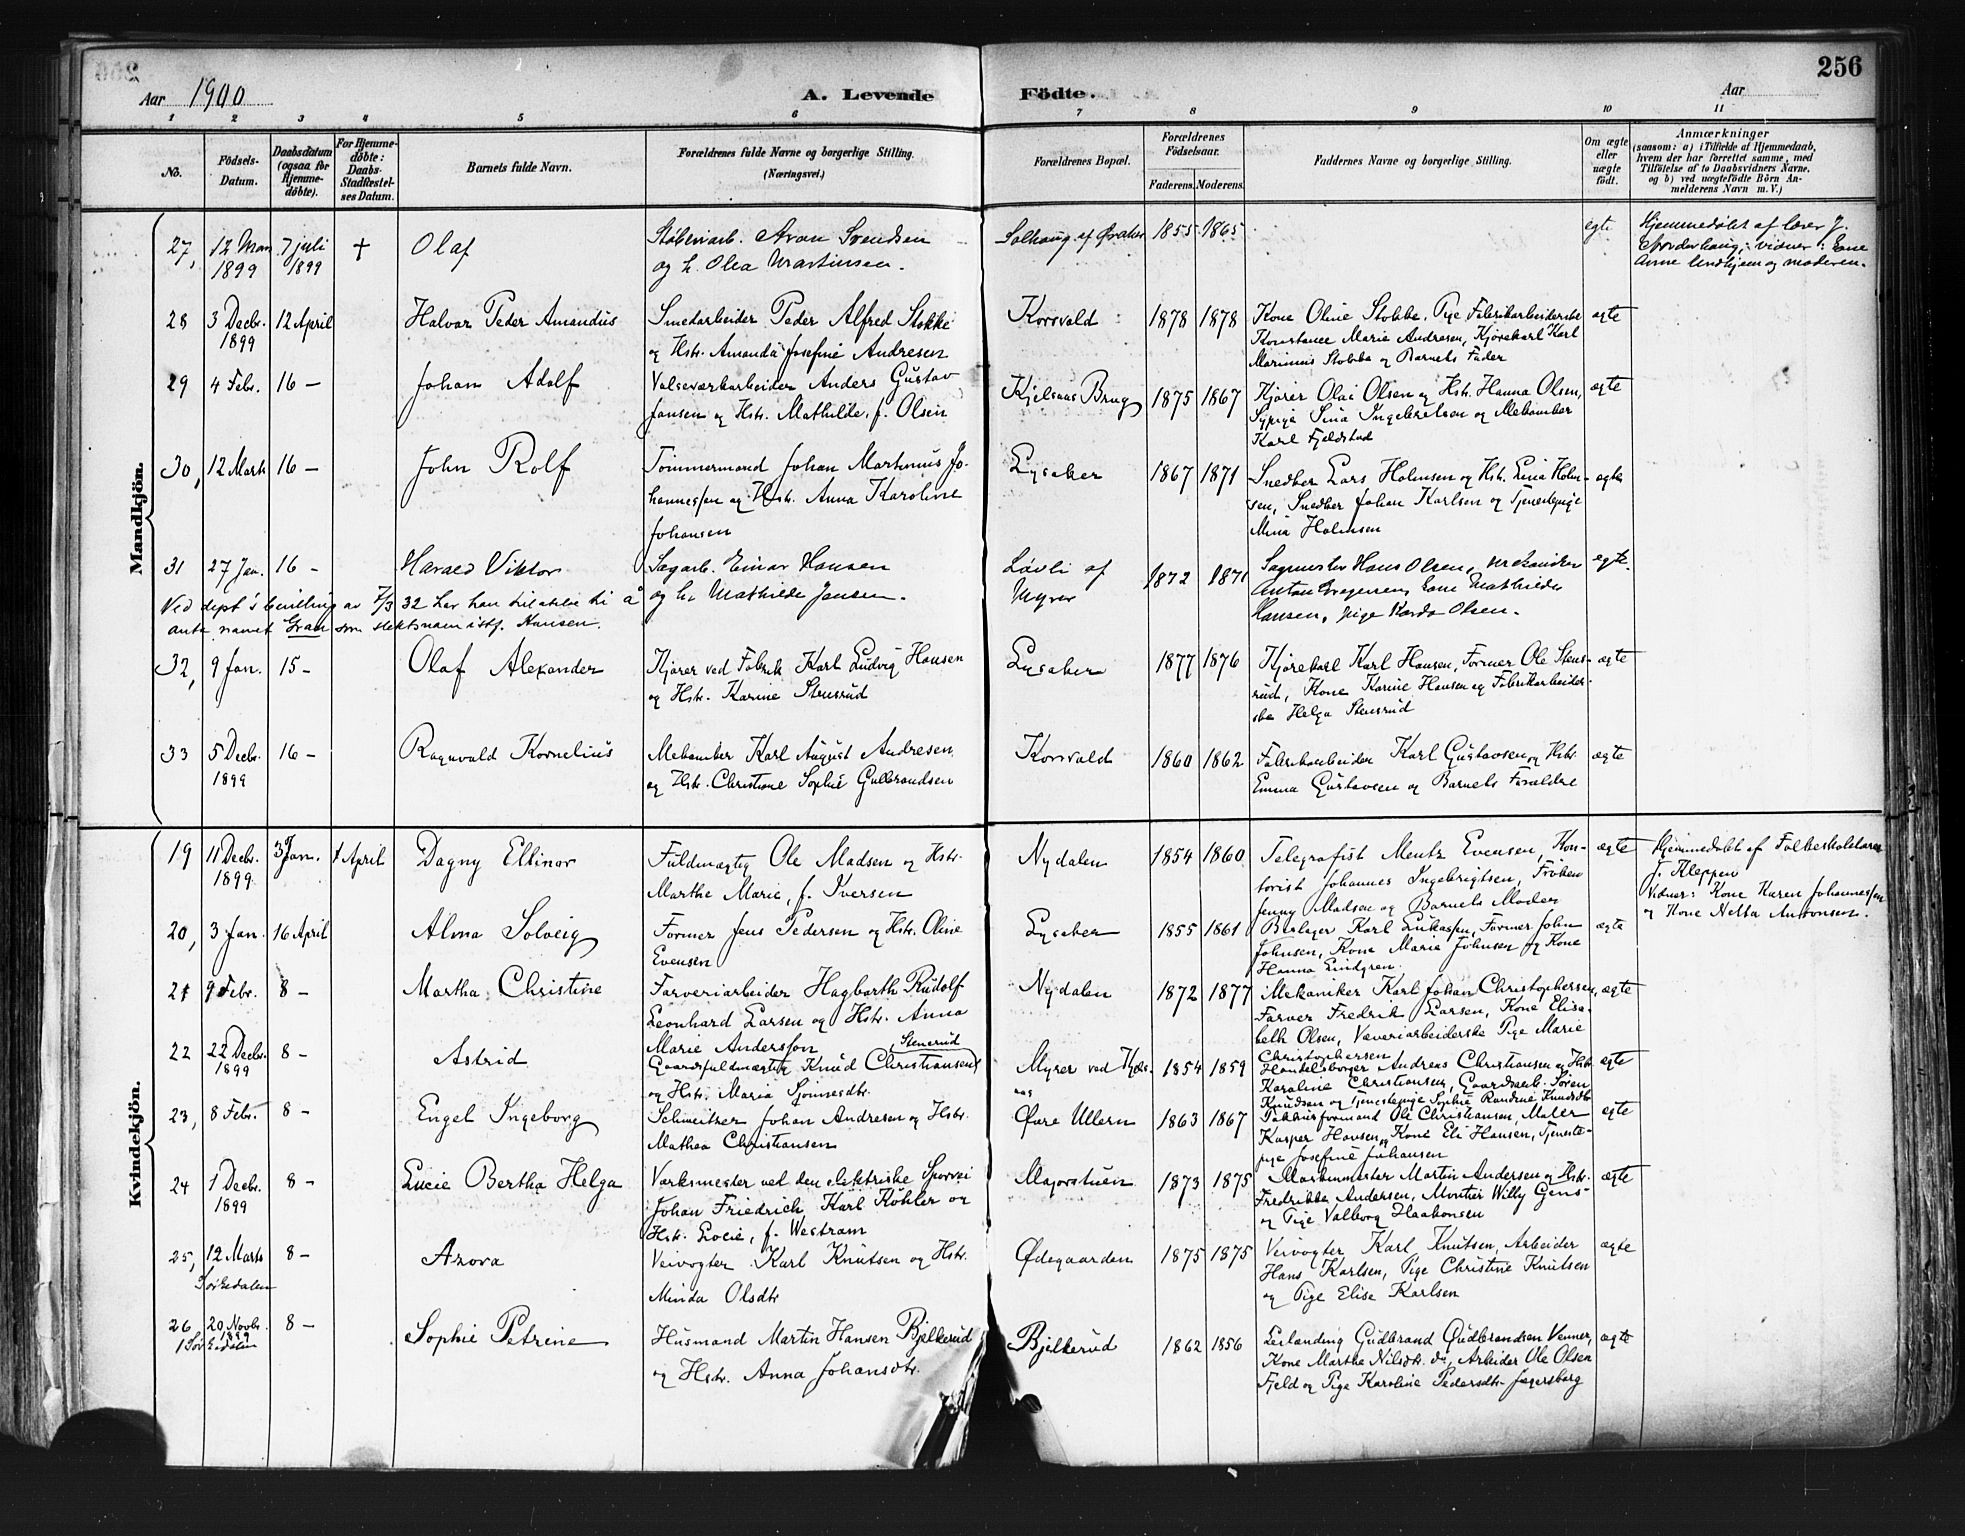 256
Aar 1900
A. Levende Födte.
Aar
1 2 3 4 5 6 7 8 9 10 11
No.
Födsels-Datum.
Daabsdatum (ogsaa for Hjemmedöbte).
For Hjemmedöbte: Daabs-Stadfæstelses Datum.
Barnets fulde Navn.
Forældrenes fulde Navne og borgerlige Stilling. (Næringsvei.)
Forældrenes Bopæl.
Forældrenes Födselsaar.
Faderens. Moderens.
Faddernes Navne og borgerlige Stilling.
Om ægte eller uægte födt.
Anmærkninger
(saasom: a) i Tilfælde af Hjemmedaab, hvem der har forrettet samme, med Tilföielse af to Daabsvidners Navne, og b) ved uægtefödte Börn Anmelderens Navn m. V.)
Mandkjön.
27, 12 Mars 1899 7 juli 1899 † Olaf
Støberiarb. Aron Svendsen
og h. Olea Martinsen.
Solhaug af Øvaker 1855 1865 egte
Hjemmedøbt af lærer J.
Norderhaug; vidner: Kone
Anne Lindhjem og moderen.
28 3 Decbr. 1899 12 April Halvar Peder Amandus
Smedarbeider Peder Alfred Stokke
og Hstr. Amanda Josefine Andresen
Korsvold 1878 1878
Kone Oline Stokke, Pige Fabrikarbeiderske
Konstance Marie Andresen, Kjørekarl Karl
Marinius Stokke og Barnets Fader
ægte
29 4 Febr. 16 – Johan Adolf
Valseværkarbeider Anders Gustav
Jansen og Hstr. Mathilde, f. Olsen
Kjelsaas Brug 1875 1867
Kjører Olai Olsen og Hstr. Hanna Olsen,
Sypige Sina Ingebretsen og Mekaniker
Karl Fjeldstad
ægte
30, 12 Marts 16 – John Rolf
Tömmermand Johan Martinius Jo-
hannessen og Hstr. Anna Karoline
Johansen
Lysaker 1867 1871
Snedker Lars Holmsen og Hstr. Lina Holm-
sen, Snedker Johan Karlsen og Tjenestepige
Mina Holmsen
ægte
31 27 Jan. 16 – Harald Viktor
Sagarb. Einar Hansen
og h. Mathilde Jansen.
Løvli af
Myrer 1872 1871
Sagmester Hans Olsen, mekaniker
Anton Gregersen, Kone Mathilde
Hansen, pige Karda Olsen.
egte.
Ved dept's bevilling av 7/3 32 har han tillatelse til å
anta navnet Gran som slektsnam istf. Hansen.
32, 9 Jan. 15 – Olaf Alexander
Kjører ved Fabrik Karl Ludvig Hansen
og Hstr. Karine Stensrud
Lysaker 1877 1876
Kjørekarl Karl Hansen, Former Ole Stens-
rud, Kone Karine Hansen og Fabrikarbeider-
ske Helga Stensrud
ægte
33 5 Decbr. 1899 16 – Ragnvald Kornelius
Mekaniker Karl August Andresen
og Hstr. Christiane Sophie Gulbrandsen
Korsvold 1860 1862
Fabrikarbeider Karl Gustavsen og Hstr.
Emma Gustavsen og Barnets Forældre
ægte
Kvindekjön.
19 11 Decbr. 1899 3 Jan. 1 April Dagny Ellinor
Fuldmægtig Ole Madsen og Hstr.
Marthe Marie, f. Iversen
Nydalen 1854 1860
Telegrafist Mentz Evensen, Kon-
torist Johannes Ingebrigtsen, Frøken
Jenny Madsen og Barnets Moder
ægte
Hjemmedøbt af Folkeskolelærer
J. Kleppen
Vidner: Kone Karen Johannessen
og Kone Netta Antonsen.
20, 3 Jan. 16 April Alma Solveig
Former Jens Pedersen og Hstr. Oline
Evensen
Lysaker 1855 1861
Karl Lukassen, Former John
Johnsen, Kone Marie Johnsen og Kone
Hanna Lindgren.
ægte
21 9 Febr. 8 – Martha Christine
Farveriarbeider Hagbarth Rudolf
Leonhard Larsen og Hstr. Anna
Marie Andersson
Nydalen 1872 1877
Mekaniker Karl Johan Christophersen,
Farver Fredrik Larsen, Kone Elisa-
beth Olsen, Væveriarbeiderske Pige Marie
Christophersen
ægte
22 22 Decbr. 1899 8 – Astrid
Stenerud
Gaardsfuldmægtig Knud Christiansen
og Hstr. Maria Sjønnesdtr.
Myrer ved Kjels-
aas 1854 1859
Handelsborger Andreas Christiansen og Hstr.
Karoline Christiansen, Gaardsarb. Søren
Knudsen og Tjenestepige Sophie Randine Knudsdtr
egte
23, 8 Febr. 8 – Engel Ingeborg
Schweitser Johan Andresen og Hstr.
Mathea Christiansen
Øvre Ullern 1863 1867
Pakhusformand Ole Christiansen, Maler
Kasper Hansen, Kone Eli Hansen, Tjeneste-
pige Josefine Johansen
egte
24 1 Decbr. 1899 8 – Lucie Bertha Helga
Værksmester ved den elektriske Sporvei
Johan Friedrich Karl Köhler og
Hstr. Lucie, f. Westram
Majorstuen 1873 1875
Maskinmester Martin Andersen og Hstr.
Fredrikke Andersen, Montør Willy Gens-
og Pige Valborg Haakonsen
ægte
25, 12 Marts 8 – Azora
Sørkedalen
Veivogter Karl Knutsen og Hstr.
Minda Olsdtr
Ødegaarden 1875 1875
Veivogter Karl Knutsen, Arbeider
Hans Karlsen, Pige Christine Knutsen
og Pige Elise Karlsen
ægte
26 20 Novbr. 1899 8 – Sophie Petrine
i Sørkedalen
Husmand Martin Hansen Bjelkerud
og Hstr. Anna Johansdtr.
Bjelkerud 1862 1856
Leilænding Gudbrand Gudbrandsen Venner,
Kone Marthe Nilsdtr. do, Arbeider Ole Olsen
Fjeld og Pige Karoline Pedersdtr. Jegersberg
ægte